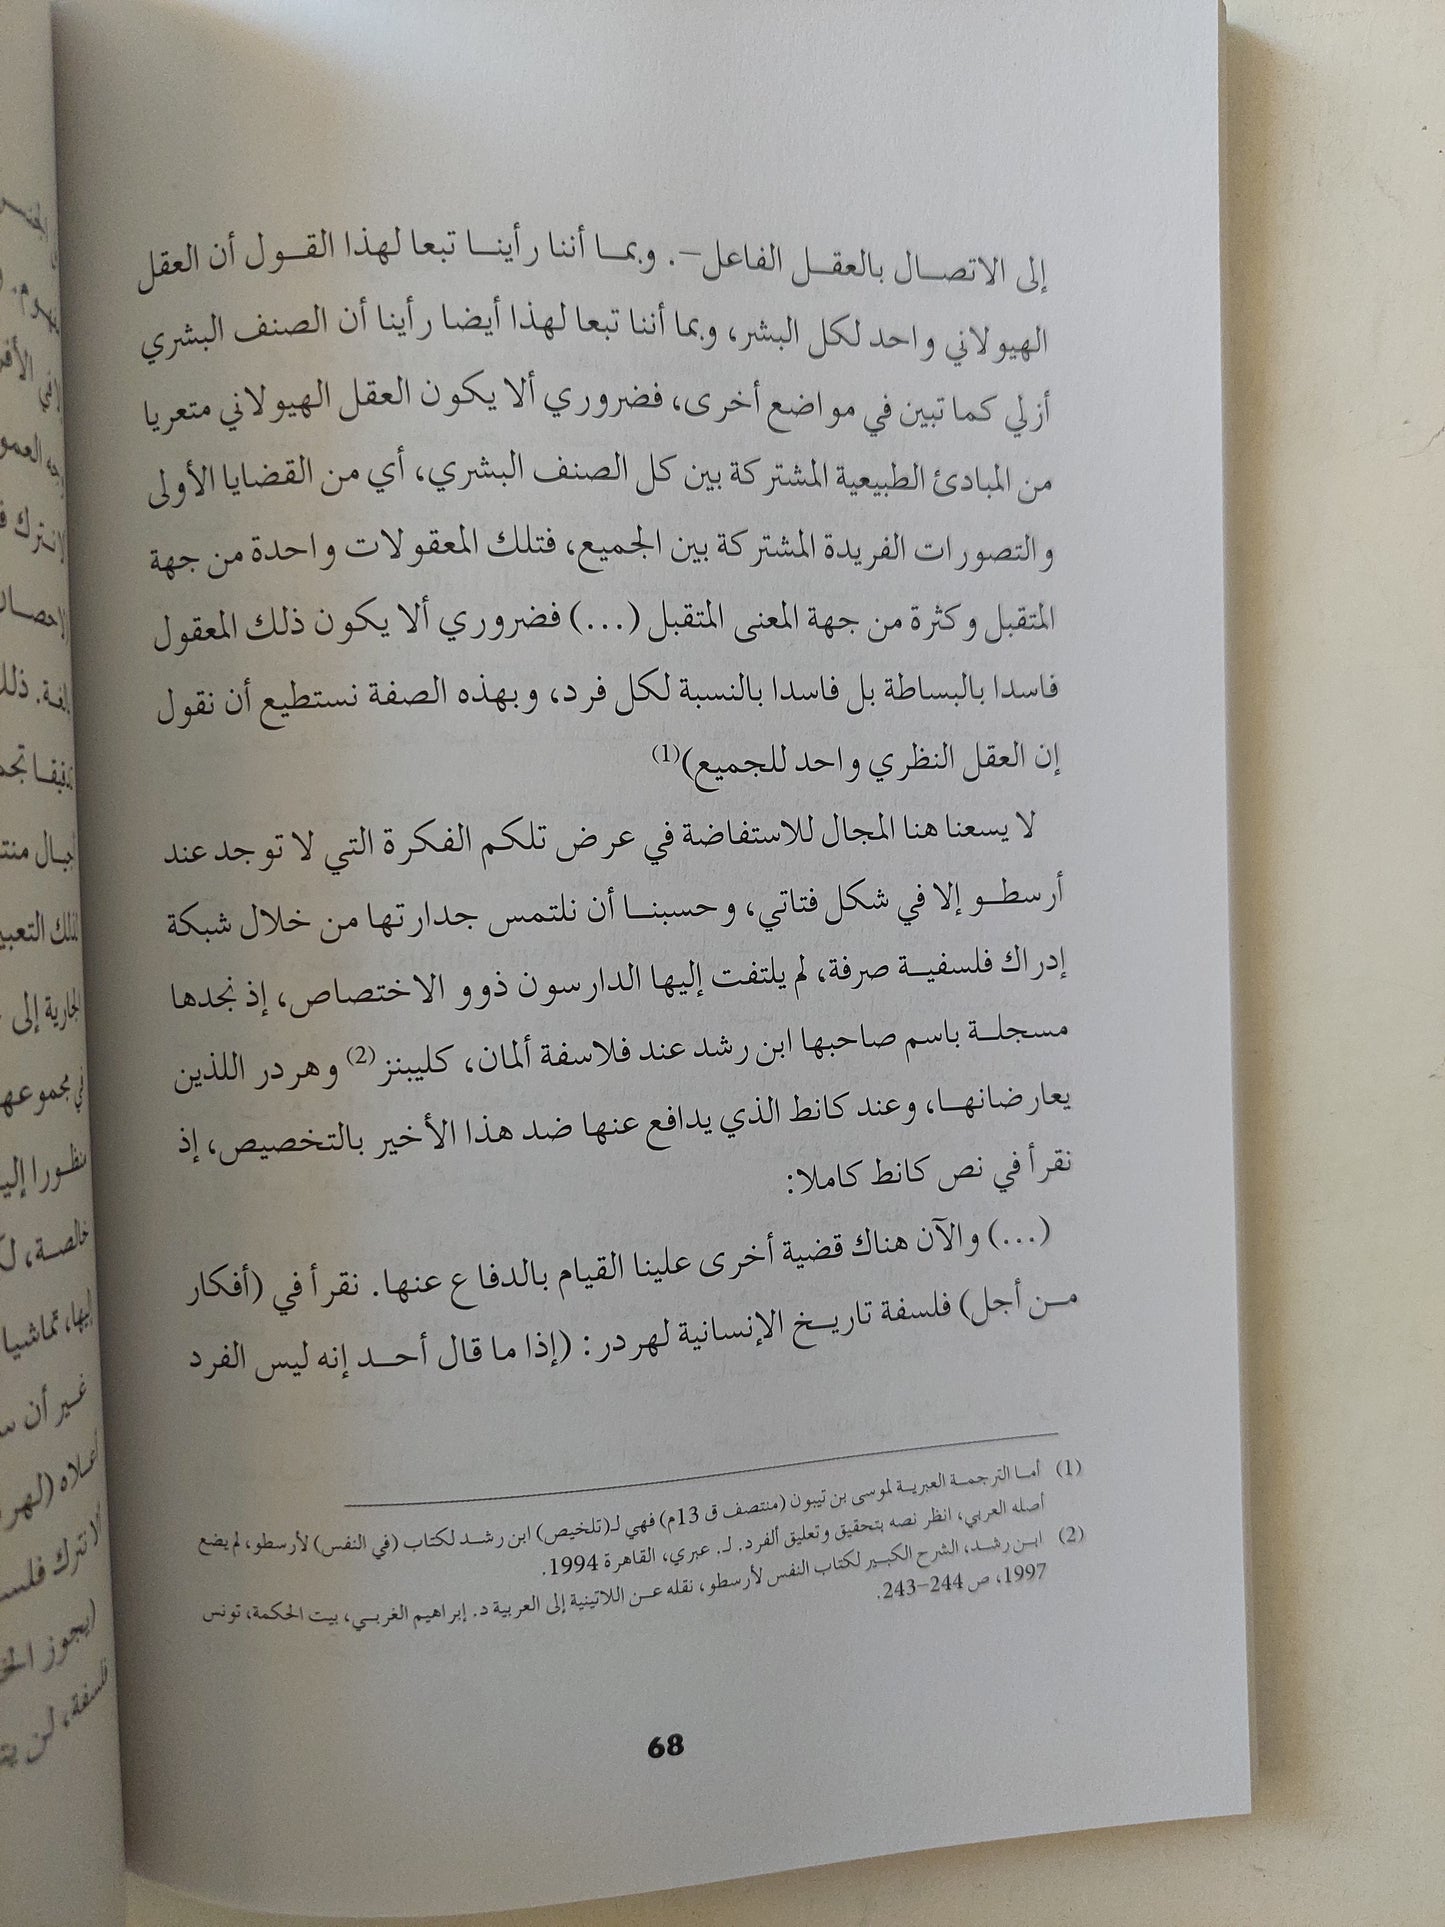 إلى الاتصال بالعقل الفاعل–. وبما أننا رأينا تبعا لهذا القول أن العقل
الهيولاني واحد لكل البشر، وبما أننا تبعا لهذا أيضا رأينا أن الصنف البشري
أزلي كما تبين في مواضع أخرى، فضروري ألا يكون العقل الهيولاني متعريا
من المبادئ الطبيعية المشتركة بين كل الصنف البشري، أي من القضايا الأولى
والتصورات الفريدة المشتركة بين الجميع، فتلك المعقولات واحدة من جهة
المتقبل وكثرة من جهة المعنى المتقبل (...) فضروري ألا يكون ذلك المعقول
فاسدا بالبساطة بل فاسدا بالنسبة لكل فرد، وبهذه الصفة نستطيع أن نقول
إن العقل النظري واحد للجميع)(1)
لا يسعنا هنا المجال للاستفاضة في عرض تلكم الفكرة التي لا توجد عند
أرسطو إلا في شكل فتاتي، وحسبنا أن نلتمس جدارتها من خلال شبكة
إدراك فلسفية صرفة، لم يلتفت إليها الدارسون ذوو الاختصاص، إذ نجدها
مسجلة باسم صاحبها ابن رشد عند فلاسفة ألمان، كليبنز(2) وهردر اللذين
يعارضانها، وعند كانط الذي يدافع عنها ضد هذا الأخير بالتخصيص، إذ
نقرأ في نص كانط كاملا:
(...) والآن هناك قضية أخرى علينا القيام بالدفاع عنها. نقرأ في (أفكار
من أجل) فلسفة تاريخ الإنسانية لهردر: (إذا ما قال أحد إنه ليس الفرد
(1) أما الترجمة العبرية لموسى بن تيبون (منتصف ق 13م) فهي لـ(تلخيص) ابن رشد لكتاب (في النفس) لأرسطو، لم يضع
أصله العربي، انظر نصه بتحقيق وتعليق ألفرد. لـ. عبري، القاهرة 1994.
(2) ابن رشد، الشرح الكبير لكتاب النفس لأرسطو، نقله عن اللاتينية إلى العربية د. إبراهيم الغربي، بيت الحكمة، تونس
1997، ص 244–243.
68